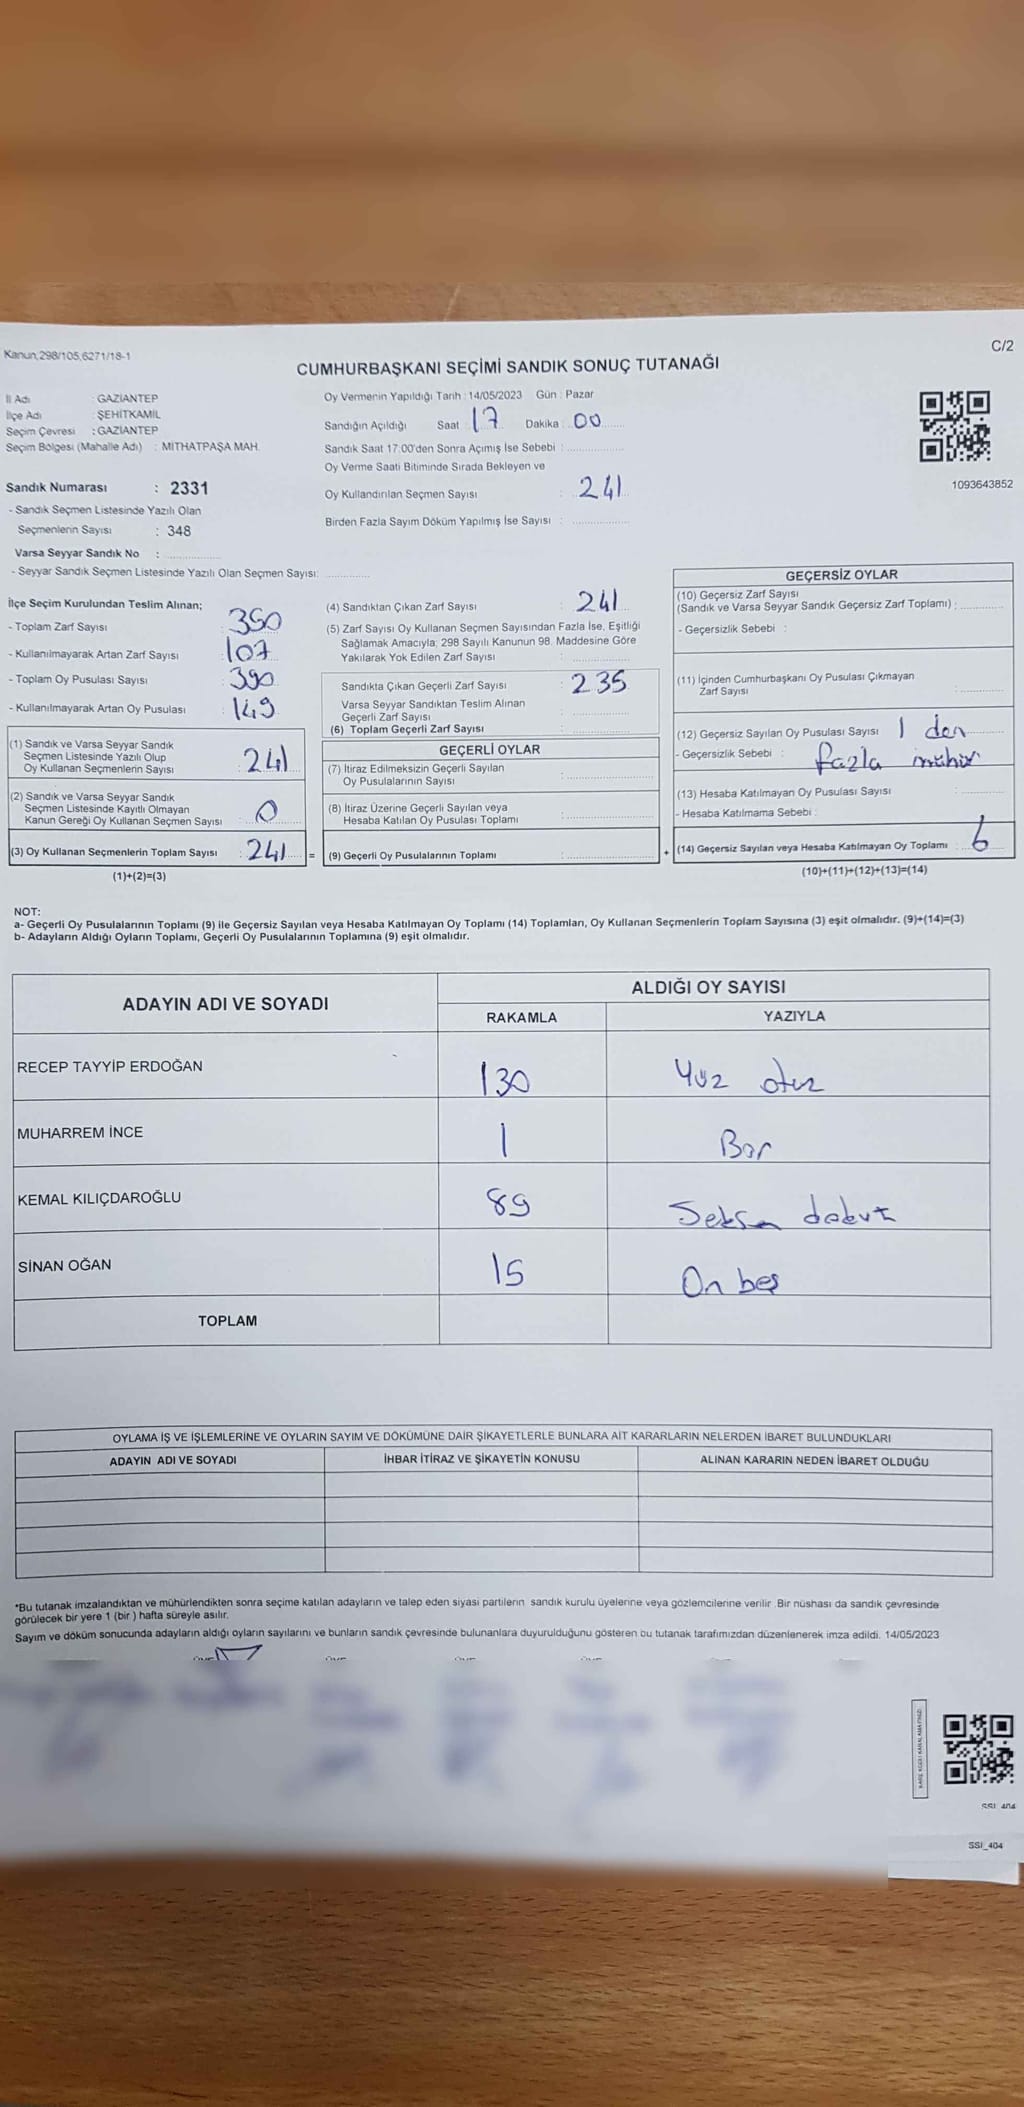 Kanun,298/105,6271/18-1
C/2
CUMHURBAŞKANI SEÇİMİ SANDIK SONUÇ TUTANAĞI
İl Adı : GAZİANTEP
İlçe Adı : ŞEHİTKAMİL
Seçim Çevresi : GAZİANTEP
Seçim Bölgesi (Mahalle Adı) : MİTHATPAŞA MAH.
Sandık Numarası : 2331
- Sandık Seçmen Listesinde Yazılı Olan
Seçmenlerin Sayısı : 348
Varsa Seyyar Sandık No : ..............
- Seyyar Sandık Seçmen Listesinde Yazılı Olan Seçmen Sayısı: ..............
Oy Vermenin Yapıldığı Tarih : 14/05/2023 Gün : Pazar
Sandığın Açıldığı Saat 17 Dakika : 00
Sandık Saat 17:00'den Sonra Açımış İse Sebebi : ..............
Oy Verme Saati Bitiminde Sırada Bekleyen ve
Oy Kullandırılan Seçmen Sayısı : 241
Birden Fazla Sayım Döküm Yapılmış İse Sayısı : ..............
1093643852
İlçe Seçim Kurulundan Teslim Alınan;
- Toplam Zarf Sayısı : 350
- Kullanılmayarak Artan Zarf Sayısı : 107
- Toplam Oy Pusulası Sayısı : 390
- Kullanılmayarak Artan Oy Pusulası : 149
(1) Sandık ve Varsa Seyyar Sandık
Seçmen Listesinde Yazılı Olup
Oy Kullanan Seçmenlerin Sayısı : 241
(2) Sandık ve Varsa Seyyar Sandık
Seçmen Listesinde Kayıtlı Olmayan
Kanun Gereği Oy Kullanan Seçmen Sayısı : 0
(3) Oy Kullanan Seçmenlerin Toplam Sayısı : 241 =
(1)+(2)=(3)
(4) Sandıktan Çıkan Zarf Sayısı : 241
(5) Zarf Sayısı Oy Kullanan Seçmen Sayısından Fazla İse, Eşitliği
Sağlamak Amacıyla; 298 Sayılı Kanunun 98. Maddesine Göre
Yakılarak Yok Edilen Zarf Sayısı : ..............
Sandıkta Çıkan Geçerli Zarf Sayısı : 235
Varsa Seyyar Sandıktan Teslim Alınan
Geçerli Zarf Sayısı : ..............
(6) Toplam Geçerli Zarf Sayısı : ..............
GEÇERLİ OYLAR
(7) İtiraz Edilmeksizin Geçerli Sayılan
Oy Pusulalarının Sayısı : ..............
(8) İtiraz Üzerine Geçerli Sayılan veya
Hesaba Katılan Oy Pusulası Toplamı : ..............
(9) Geçerli Oy Pusulalarının Toplamı : .............. +
GEÇERSİZ OYLAR
(10) Geçersiz Zarf Sayısı
(Sandık ve Varsa Seyyar Sandık Geçersiz Zarf Toplamı) : ..............
- Geçersizlik Sebebi :
(11) İçinden Cumhurbaşkanı Oy Pusulası Çıkmayan
Zarf Sayısı : ..............
(12) Geçersiz Sayılan Oy Pusulası Sayısı 1 den
- Geçersizlik Sebebi : fazla mühür
(13) Hesaba Katılmayan Oy Pusulası Sayısı : ..............
- Hesaba Katılmama Sebebi :
(14) Geçersiz Sayılan veya Hesaba Katılmayan Oy Toplamı : 6
(10)+(11)+(12)+(13)=(14)
NOT:
a- Geçerli Oy Pusulalarının Toplamı (9) ile Geçersiz Sayılan veya Hesaba Katılmayan Oy Toplamı (14) Toplamları, Oy Kullanan Seçmenlerin Toplam Sayısına (3) eşit olmalıdır. (9)+(14)=(3)
b- Adayların Aldığı Oyların Toplamı, Geçerli Oy Pusulalarının Toplamına (9) eşit olmalıdır.
ADAYIN ADI VE SOYADI
ALDIĞI OY SAYISI
RAKAMLA YAZIYLA
RECEP TAYYİP ERDOĞAN 130 Yüz otuz
MUHARREM İNCE 1 Bir
KEMAL KILIÇDAROĞLU 89 Seksen dokuz
SİNAN OĞAN 15 On beş
TOPLAM
OYLAMA İŞ VE İŞLEMLERİNE VE OYLARIN SAYIM VE DÖKÜMÜNE DAİR ŞİKAYETLERLE BUNLARA AİT KARARLARIN NELERDEN İBARET BULUNDUKLARI
ADAYIN ADI VE SOYADI İHBAR İTİRAZ VE ŞİKAYETİN KONUSU ALINAN KARARIN NEDEN İBARET OLDUĞU
*Bu tutanak imzalandıktan ve mühürlendikten sonra seçime katılan adayların ve talep eden siyasi partilerin sandık kurulu üyelerine veya gözlemcilerine verilir. Bir nüshası da sandık çevresinde
görülecek bir yere 1 (bir ) hafta süreyle asılır.
Sayım ve döküm sonucunda adayların aldığı oyların sayılarını ve bunların sandık çevresinde bulunanlara duyurulduğunu gösteren bu tutanak tarafımızdan düzenlenerek imza edildi. 14/05/2023
SSI_404
SSI_404